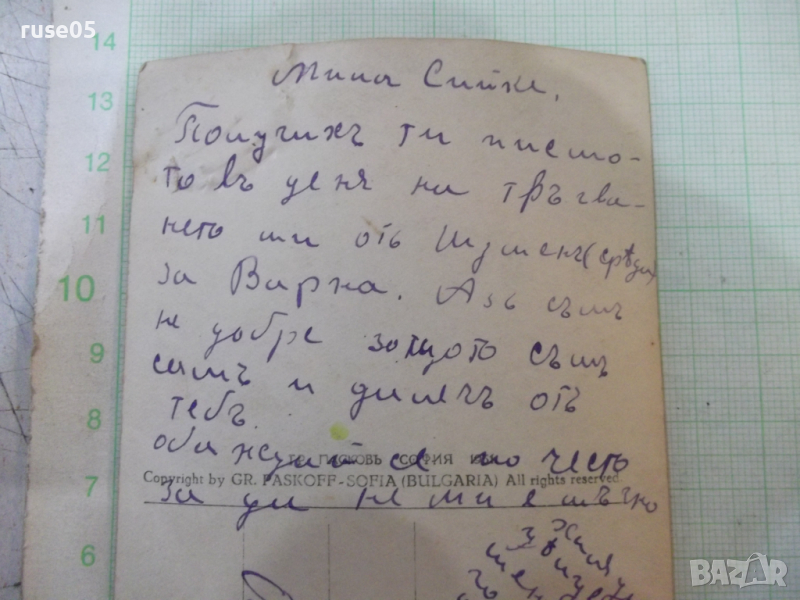 ruse05
14
13
12
11
10
9
8
7
6
Мила Сийке,
Получихъ ти писмо-
то въ деня на тръгва-
нето ми отъ Шуменъ (срѣда)
за Варна. Азъ съмъ
не добре защото съмъ
самъ и далечъ отъ
тебъ.
обаждай се по често
ГР. ПАСКОВЪ СОФИЯ
Copyright by GR. PASKOFF-SOFIA (BULGARIA) All rights reserved
за да не ми е мъчно
BAZAR
bazar.bg